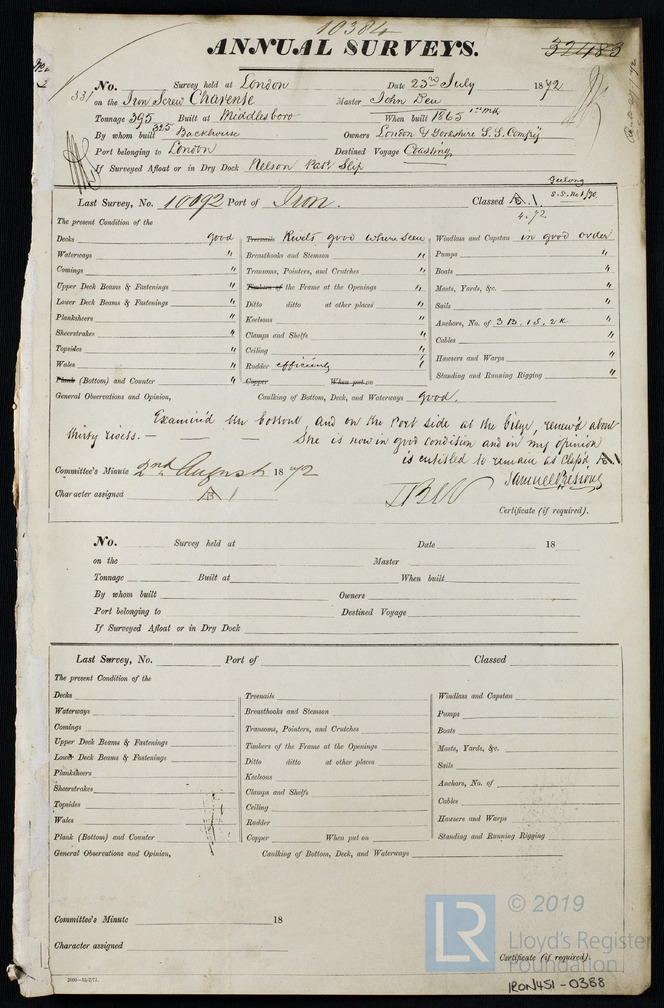 10384
ANNUAL SURVEYS. 32483
No. Survey held at London Date 23rd July 1872
331 on the Iron Screw Charente Master John Deu
Tonnage 395 Built at Middlesboro When built 1865 1mo
325
By whom built Backhouse Owners London & Yorkshire S.S. Compy
Port belonging to London Destined Voyage Coasting
If Surveyed Afloat or in Dry Dock Nelson Pat Slip
Last Survey, No. 10092 Port of Iron. Classed A.1. S.S. No 1/70
4.72
The present Condition of the
Decks good Treenails Rivets good where seen Windlass and Capstan in good order
Waterways " Breasthooks and Stemson " Pumps "
Comings " Transoms, Pointers, and Crutches " Boats "
Upper Deck Beams & Fastenings " Timbers of the Frame at the Openings " Masts, Yards, &c. "
Lower Deck Beams & Fastenings " Ditto ditto at other places " Sails "
Planksheers " Keelsons " Anchors, No. of 3 B, 1 S, 2 K "
Sheerstrakes " Clamps and Shelfs " Cables "
Topsides " Ceiling " Hawsers and Warps "
Wales " Rudder efficient " Standing and Running Rigging "
Plank (Bottom) and Counter " Copper When put on
General Observations and Opinion, Caulking of Bottom, Deck, and Waterways good.
Examined the bottom, and on the Port side at the bilge, renew'd about
thirty rivets. — She is now in good condition and in my opinion
is entitled to remain as Class'd A1
Committee's Minute 2nd August 1872
Character assigned A 1
Certificate (if required).
No. Survey held at Date 18
on the Master
Tonnage Built at When built
By whom built Owners
Port belonging to Destined Voyage
If Surveyed Afloat or in Dry Dock
Last Survey, No. Port of Classed
The present Condition of the
Decks Treenails Windlass and Capstan
Waterways Breasthooks and Stemson Pumps
Comings Transoms, Pointers, and Crutches Boats
Upper Deck Beams & Fastenings Timbers of the Frame at the Openings Masts, Yards, &c.
Lower Deck Beams & Fastenings Ditto ditto at other places Sails
Planksheers Keelsons Anchors, No. of
Sheerstrakes Clamps and Shelfs Cables
Topsides Ceiling Hawsers and Warps
Wales Rudder Standing and Running Rigging
Plank (Bottom) and Counter Copper When put on
General Observations and Opinion, Caulking of Bottom, Deck, and Waterways
Committee's Minute 18
Character assigned
Certificate (if required).
LR © 2019
Lloyd's Register
Foundation
IRON451-0388